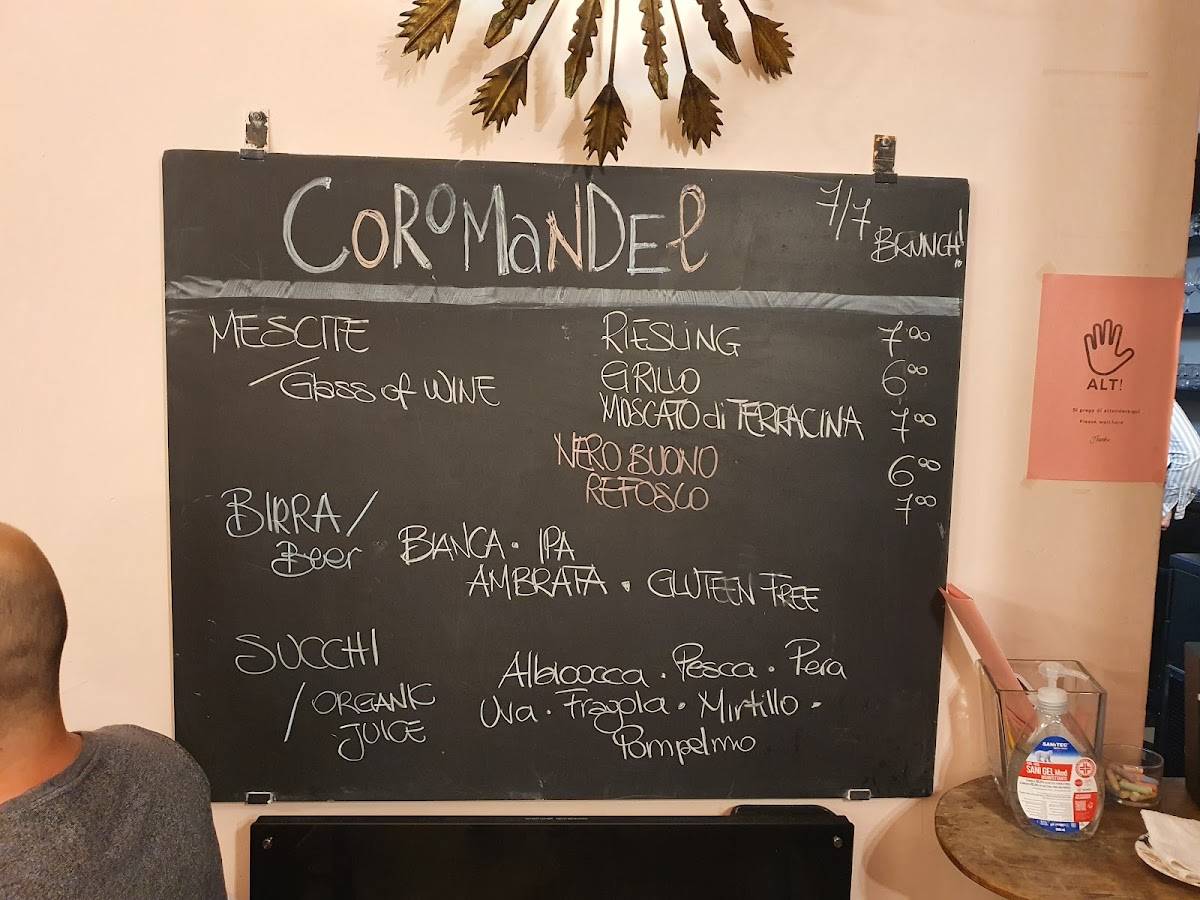 CoRoMaNDEl
7/7
BRUNCH!
MESCITE
/Glass of WINE
RIESLING 7.00
GRILLO 6.00
MOSCATO di TERRACINA 7.00
NERO BUONO 6.00
REFOSCO 7.00
BIRRA /
Beer
BIANCA · IPA
AMBRATA · GLUTEEN FREE
SUCCHI
/ ORGANIC
JUICE
Albicocca · Pesca · Pera
Uva · Fragola · Mirtillo ·
Pompelmo
ALT!
Si prega di attendere qui
Please wait here
Thanks
SANITEC
SANI GEL Med